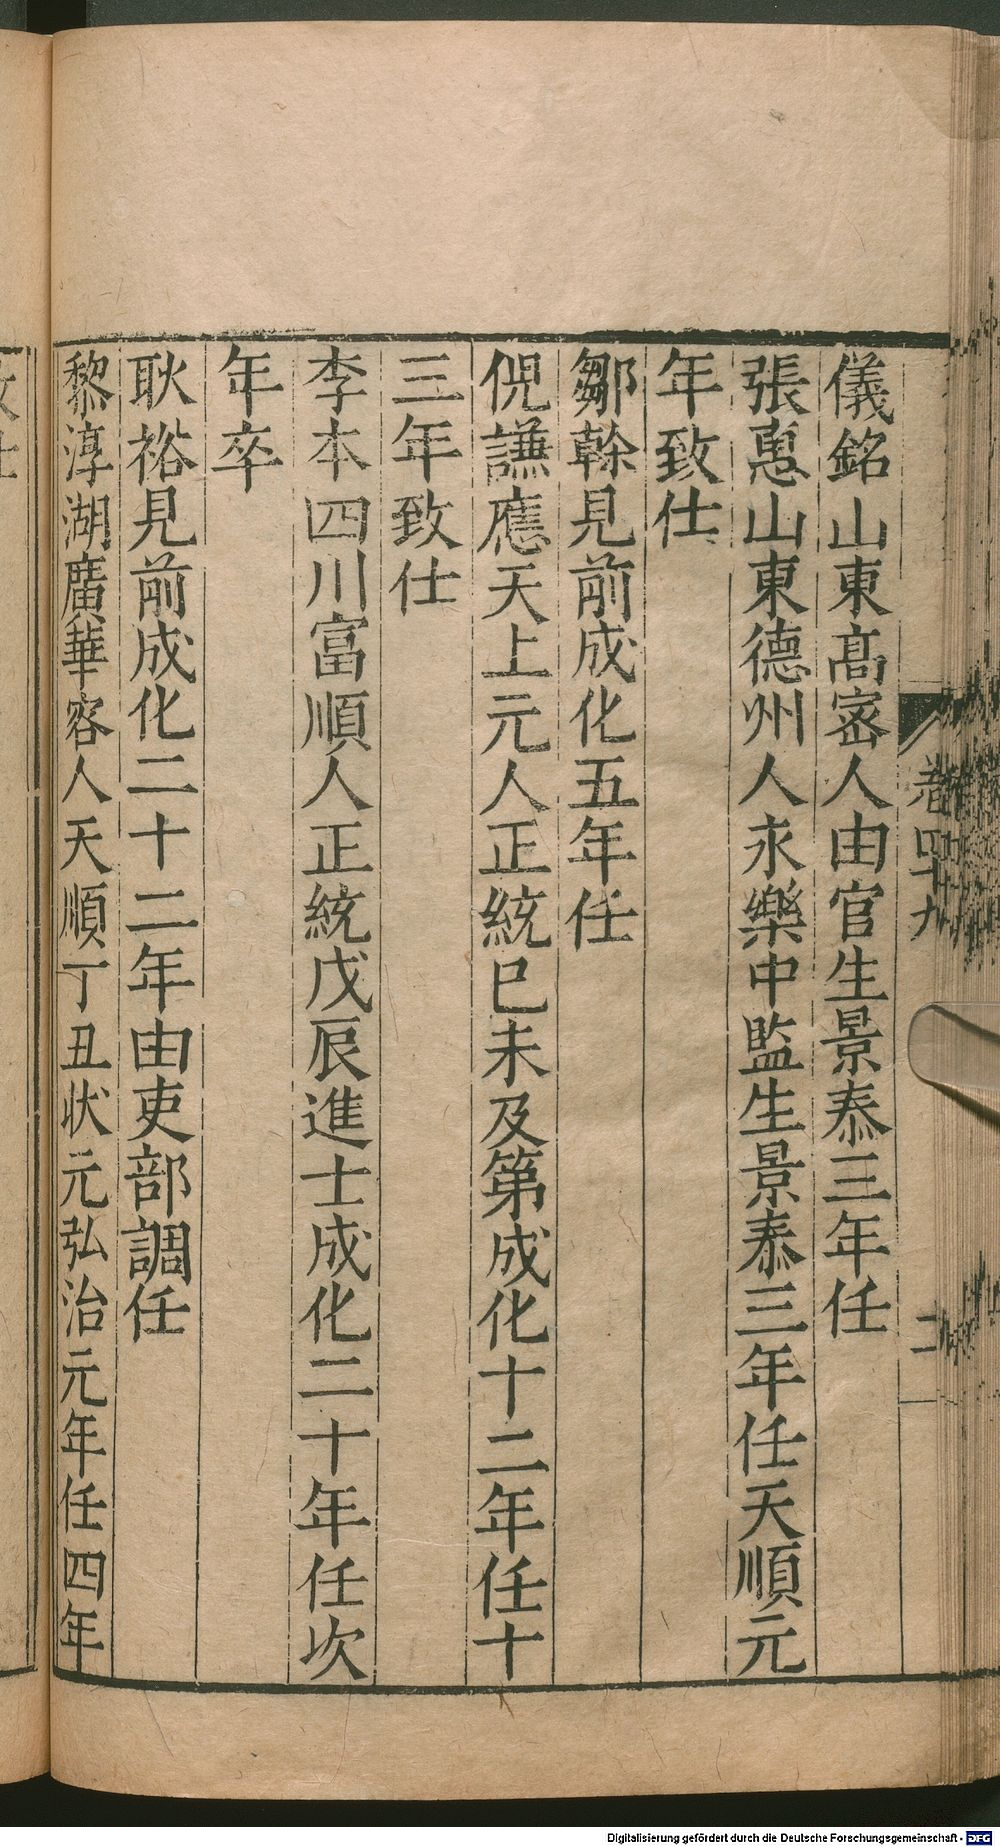 卷四十九
二
儀銘山東高宻人由官生景泰三年任
張惠山東德州人永樂中監生景泰三年任天順元
年致仕
鄒幹見前成化五年任
倪謙應天上元人正統巳未及第成化十二年任十
三年致仕
李本四川富順人正統戊辰進士成化二十年任次
年卒
耿裕見前成化二十二年由吏部調任
黎淳湖廣華容人天順丁丑狀元弘治元年任四年
致仕
Digitalisierung gefördert durch die Deutsche Forschungsgemeinschaft - DFG